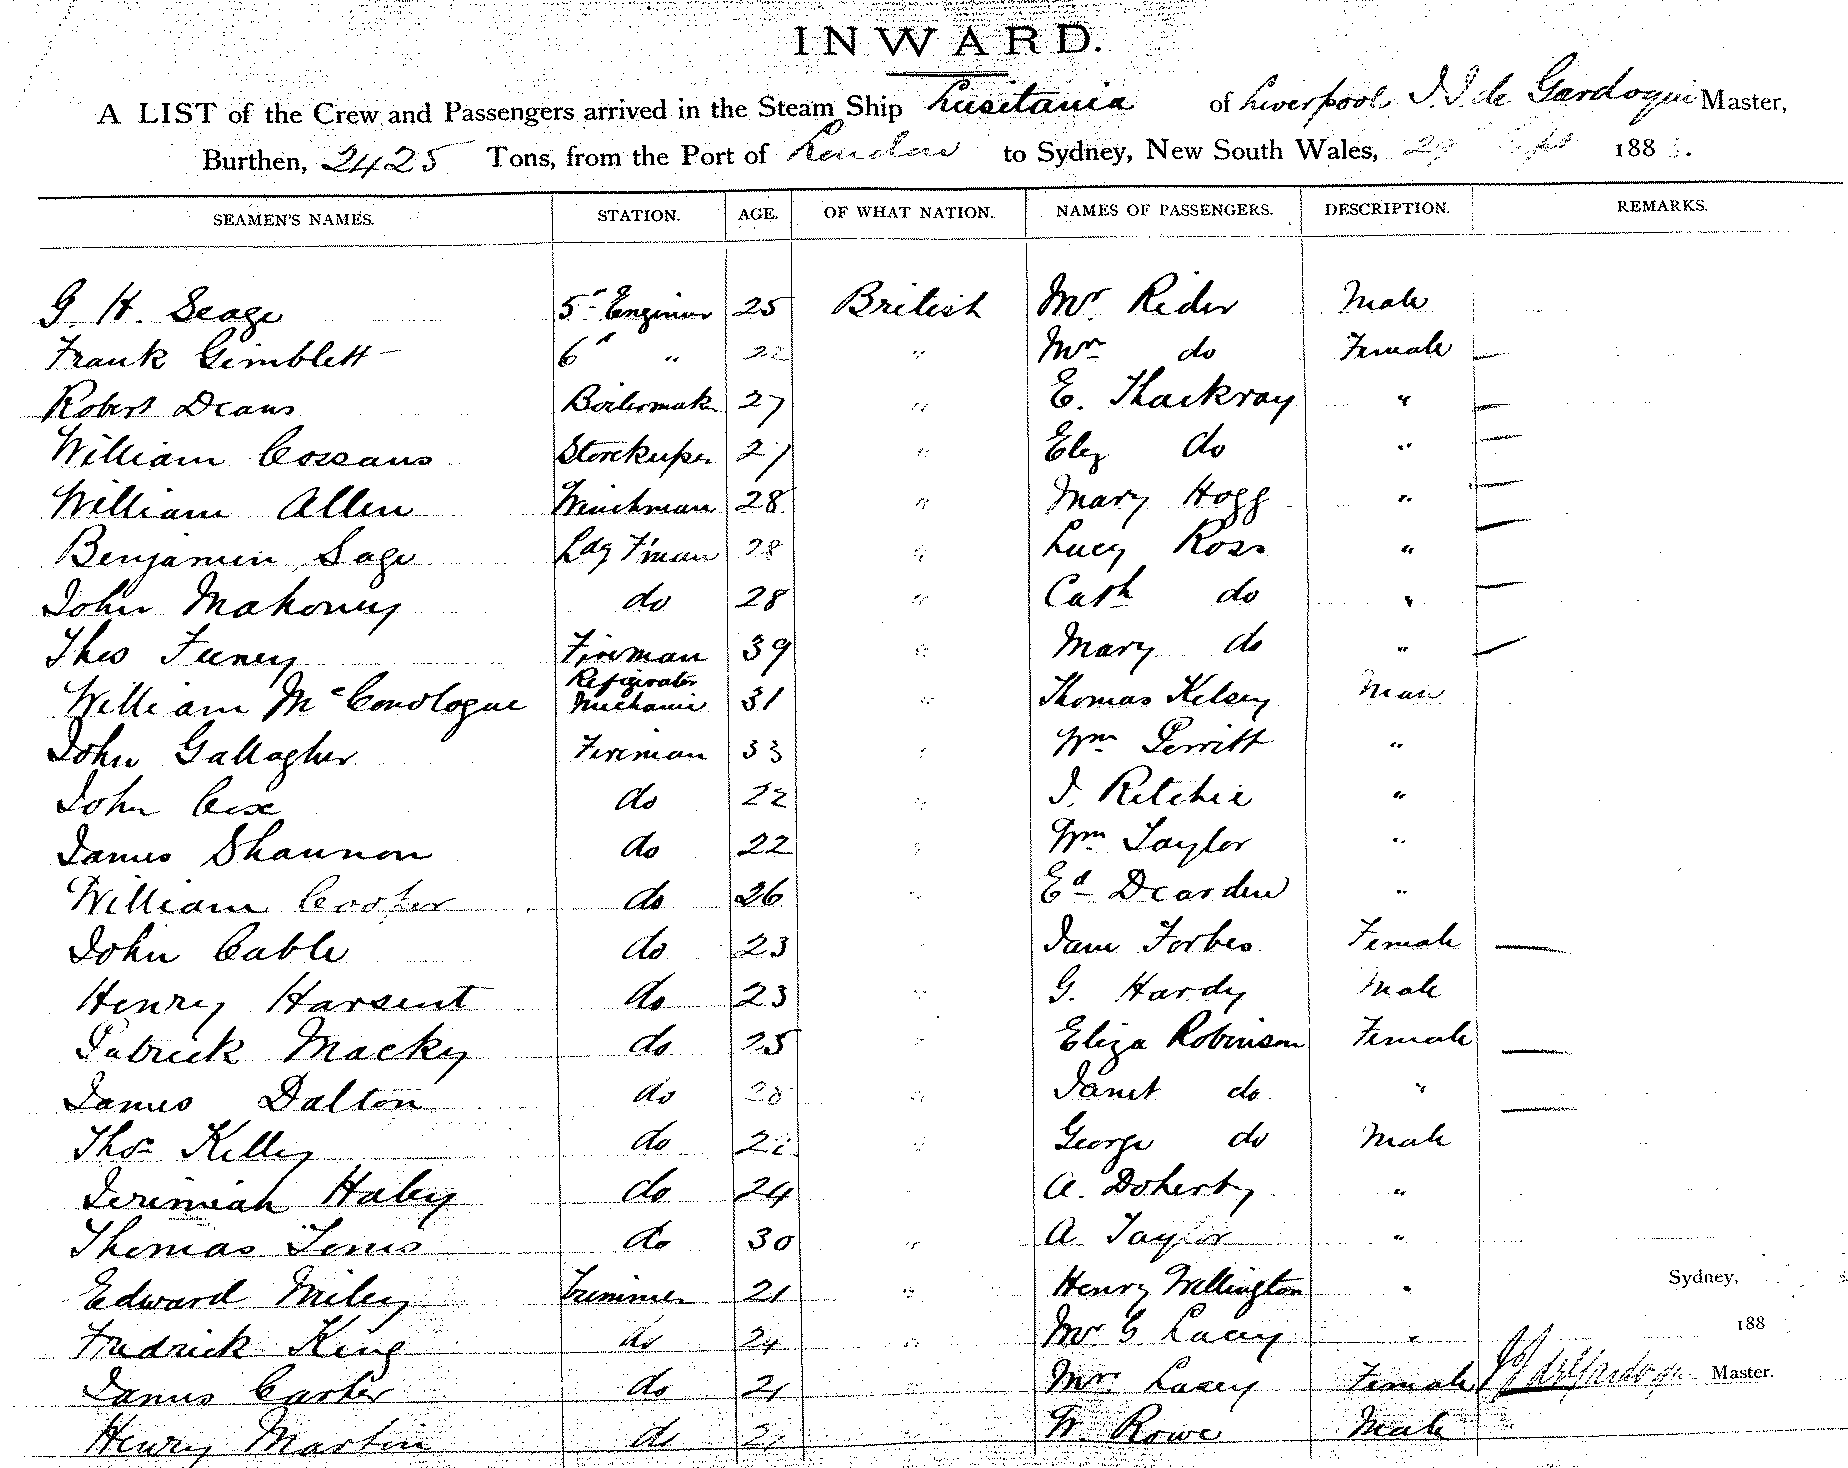 INWARD.
A LIST of the Crew and Passengers arrived in the Steam Ship Lusitania of Liverpool J. J. de Gardoqui Master,
Burthen, 2425 Tons, from the Port of London to Sydney, New South Wales, 29 188 .
SEAMEN'S NAMES. STATION. AGE. OF WHAT NATION. NAMES OF PASSENGERS. DESCRIPTION. REMARKS.
G. H. Seage 5th Engineer 25 British Mr Rider Male
Frank Gimblett 6th " 22 " Mrs do Female
Robert Deans Boilermakr 27 " E. Thackray "
William Cossans Storekeeper 27 " Eliz do "
William Allen Winchman 28 " Mary Hogg "
Benjamin Sage Ldg F'man 28 " Lucy Ross "
John Mahoney do 28 " Cath do "
Thos Feeney Fireman 39 " Mary do "
William McConologue Refrigerator Mechanic 31 " Thomas Kelsey Male
John Gallagher Fireman 33 " Wm Perritt "
John Cox do 22 " J. Ritchie "
James Shannon do 22 " Wm Taylor "
William Cooper do 26 " Ed Dearden "
John Cable do 23 Jane Forbes Female
Henry Harsent do 23 " G. Hardy Male
Patrick Macky do 25 " Eliza Robinson Female
James Dalton do 28 " Janet do "
Thos Kelley do 22 " George do Male
Jeremiah Haley do 24 A. Doherty "
Thomas Jones do 30 " A Taylor "
Edward Miley Trimmer 21 " Henry Wellington "
Sydney,
Fredrick King do 24 " Mr G Lacey "
188
James Carter do 21 " Mrs Lacey Female J J de Gardoqui Master.
Henry Martin do 21 " W. Rowe Male